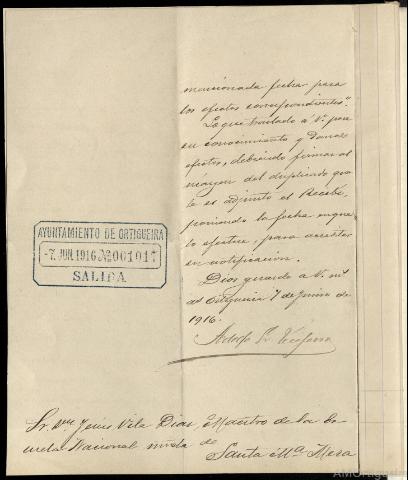 mencionada fecha para
los efectos correspondientes".
Lo que traslado á V. para
su conocimiento y demás
efectos, debiendo firmar al
márgen del duplicado que
le es adjunto el Recibí,
poniendo la fecha en que
lo efectue, para acreditar
su notificación.
Dios guarde á V. m.s
a.s Ortigueira 7 de Junio de
1916.
Adolfo
AYUNTAMIENTO DE ORTIGUEIRA
-7. JUN. 1916 No 001017
SALIDA
Sr. Jesús Vila Diaz, Maestro de la Es
cuela Nacional mixta de
Santa Mª Mera
AMOrtigueira